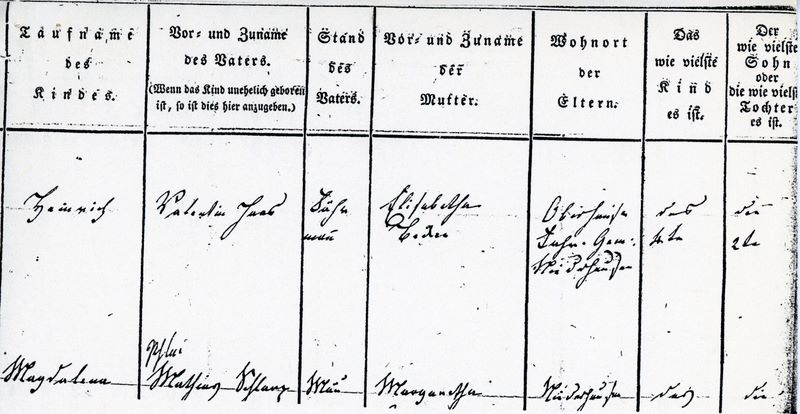 Taufname
des
Kindes.
Vor- und Zuname
des Vaters.
(Wenn das Kind unehelich geboren
ist, so ist dies hier anzugeben.)
Stand
des
Vaters.
Vor- und Zuname
der
Mutter.
Wohnort
der
Eltern.
Das
wie vielste
Kind
es ist.
Der
wie vielste
Sohn
oder
die wie vielste
Tochter
es ist.
Heinrich
Valentin Haas
Elisabetha
Oberhausen
Niederhausen
das
4te
der
2te
Magdalena
Mathias
Margaretha
Niederhausen
das
die